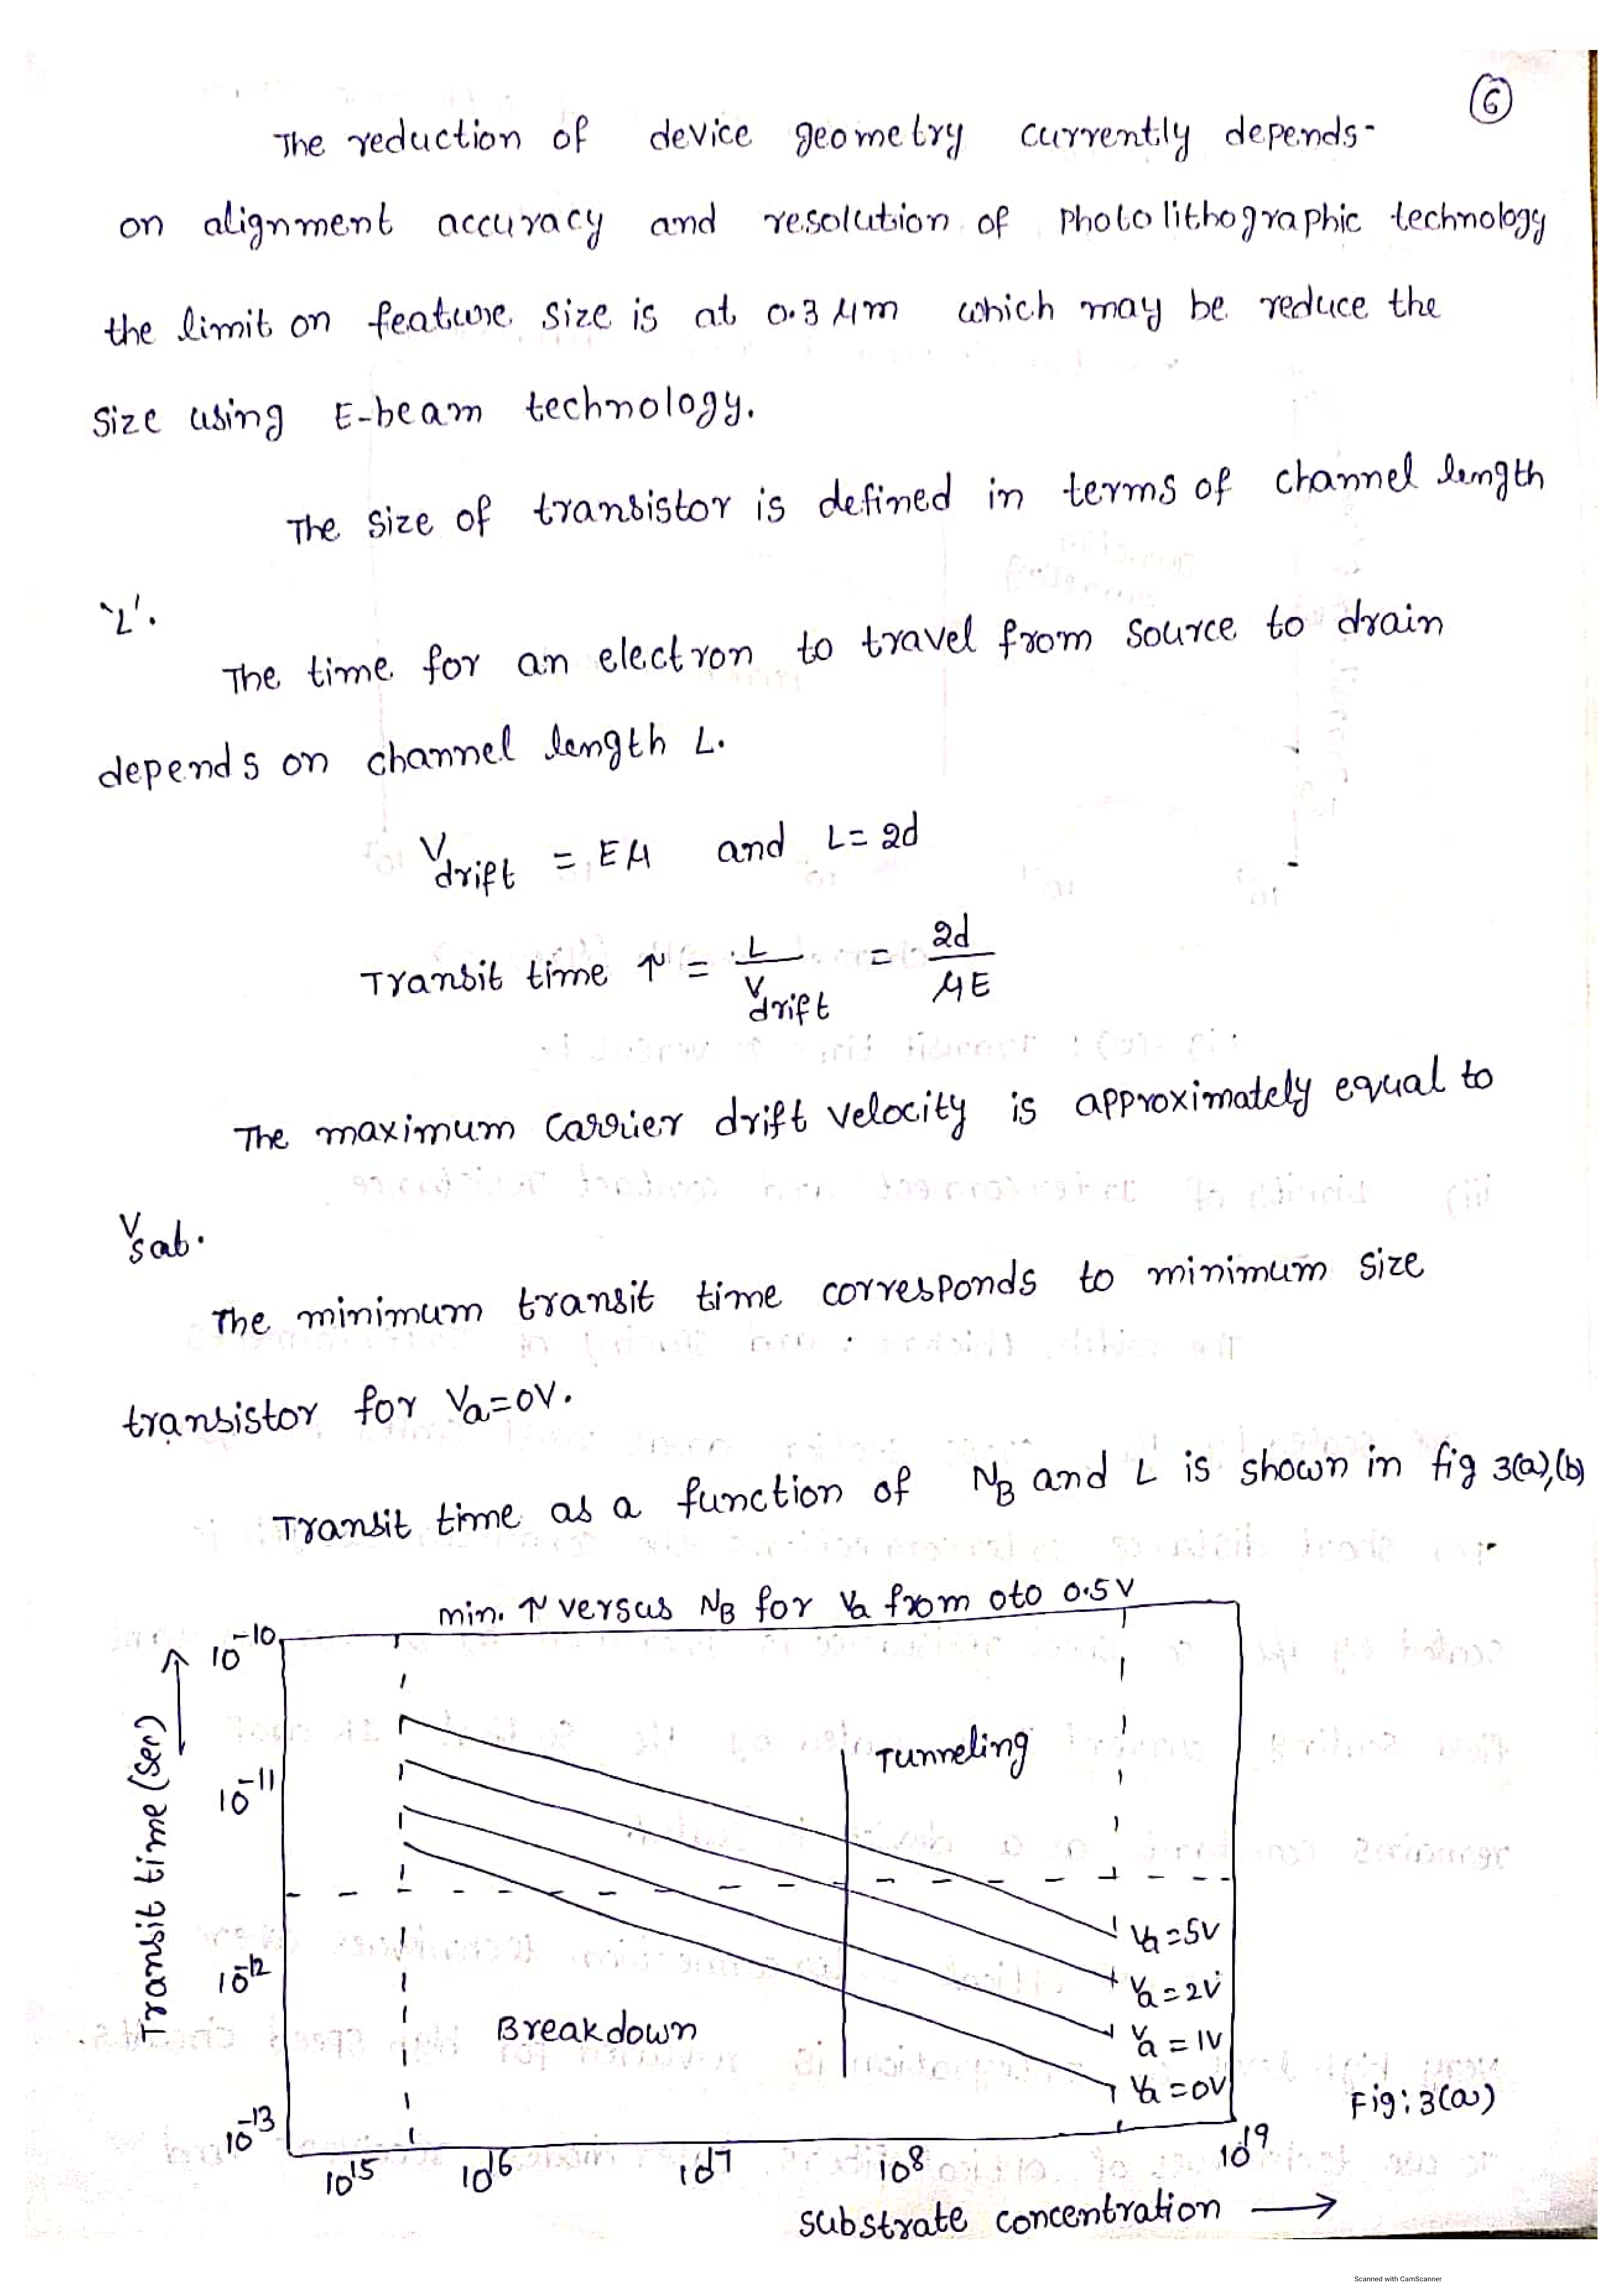 6
The reduction of device geometry currently depends-
on alignment accuracy and resolution of Photolithographic technology
the limit on feature size is at 0.3 μm which may be reduce the
size using E-beam technology.
The size of transistor is defined in terms of channel length
'L'.
The time for an electron to travel from source to drain
depends on channel length L.
Vdrift = Eμ and L= 2d
Transit time τ = L/Vdrift = 2d/μE
The maximum carrier drift velocity is approximately equal to
Vsat.
The minimum transit time corresponds to minimum size
transistor for Va=0V.
Transit time as a function of NB and L is shown in fig 3(a),(b)
min. τ versus NB for Va from 0to 0.5V
10^-10
10^-11
10^-12
10^-13
Transit time (sec)
Tunneling
Breakdown
Va=5V
Va=2V
Va=1V
Va=0V
Fig: 3(a)
10^15 10^16 10^17 10^8 10^19
substrate concentration
Scanned with CamScanner